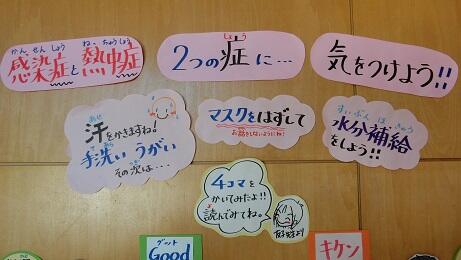 かんせんしょう ねっちゅうしょう
感染症と熱中症
しょう
2つの症に…
き
気をつけよう!!
あせ
汗をかきますね!
手洗い うがい
その次は・・・・
マスクをはずして
お話をしないようにね!
すいぶん ほきゅう
水分補給
をしよう!!
4コマを
かいてみたよ!!
読んでみてね。
グッド
Good
キケン